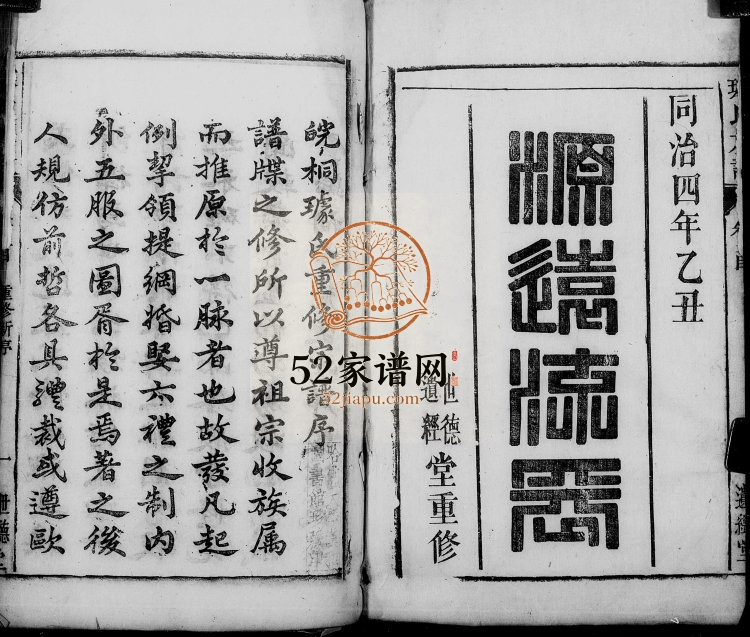 同治四年乙丑
源遠流長
世德
遺經
堂重修
遺經堂
皖桐璩氏重修宗譜序
譜牒之修所以尊祖宗收族属
而推原於一脉者也故發凡起
例挈領提綱婚娶六禮之制内
外五服之圖胥於是焉著之後
人規仿前哲各具體裁或遵歐
重修新序
一
世德堂
52家谱网
52jiapu.com